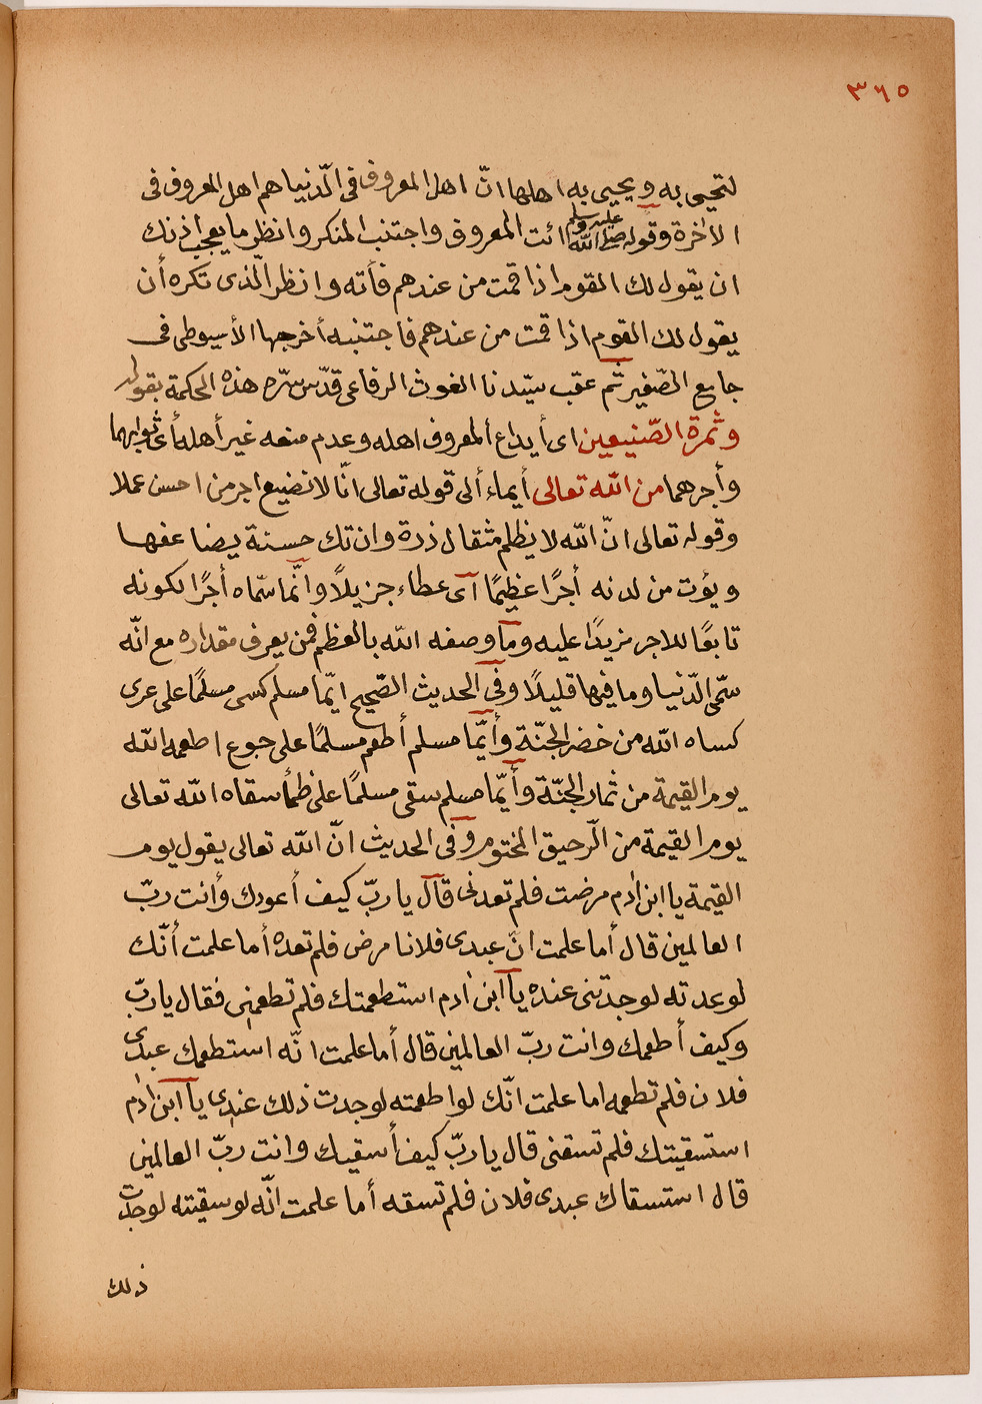 ٣٦٥
لتحيى به ويحيى به اهلها انّ اهل المعروف فى الّدنيا هم اهل المعروف فى
الاٰخرة وقوله صلى الله عليه وسلم ائت المعروف واجتنب المنكر وانظر ما يعجب اذنك
ان يقول لك القوم اذا قمت من عندهم فأته وانظر الّذى تكره أن
يقول لك القوم اذا قمت من عندهم فاجتنبه أخرجها الأسيوطى فى
جامع الصّغير ثم عقب سيّدنا الغوث الرفاعى قدّس سرّه هذه الحكمة بقوله
وثمرة الصّنيعين اى أيداع المعروف اهله وعدم منعه غير أهله أى ثوابهما
وأجرهما من الله تعالى أيماء ألى قوله تعالى انّا لا نضيع اجر من احسن عملا
وقوله تعالى انّ الله لا يظلم مثقال ذرة وان تك حسنة يضاعفها
ويؤت من لدنه أجرًا عظيمًا آى عطاء جزيلاً وانّما سمّاه أجرًا لكونه
تابعًا للاجر مزيدًا عليه وما وصفه الله بالعظم فمن يعرف مقداره مع انّه
سمّى الّدنيا وما فيها قليلاً وفى الحديث الصّحيح ايّما مسلم كسى مسلمًا على عرى
كساه الله من خضر الجنّة وأيّما مسلم أطعم مسلمًا على جوع اطعمه الله
يوم القيمة من ثمار الجنّة وأيّما مسلم سقى مسلمًا على ظمأ سقاه الله تعالى
يوم القيمة من الّرحيق المختوم وفى الحديث انّ الله تعالى يقول يوم
القيمة يا ابن اٰدم مرضت فلم تعدنى قال يا ربّ كيف أعودك وأنت ربّ
العالمين قال أما علمت انّ عبدى فلانا مرض فلم تعده أما علمت أنّك
لوعدته لوجدتنى عنده يا ابن اٰدم استطعمتك فلم تطعمنى فقال يا ربّ
وكيف أطعمك وانت ربّ العالمين قال أما علمت انّه استطعمك عبدى
فلان فلم تطعمه اما علمت انّك لو اطعمته لوجدت ذلك عندى يا ابن اٰدم
استسقيتك فلم تسقنى قال يا ربّ كيف أسقيك وانت ربّ العالمين
قال استسقاك عبدى فلان فلم تسقه أما علمت انّه لو سقيته لوجدت
ذلك